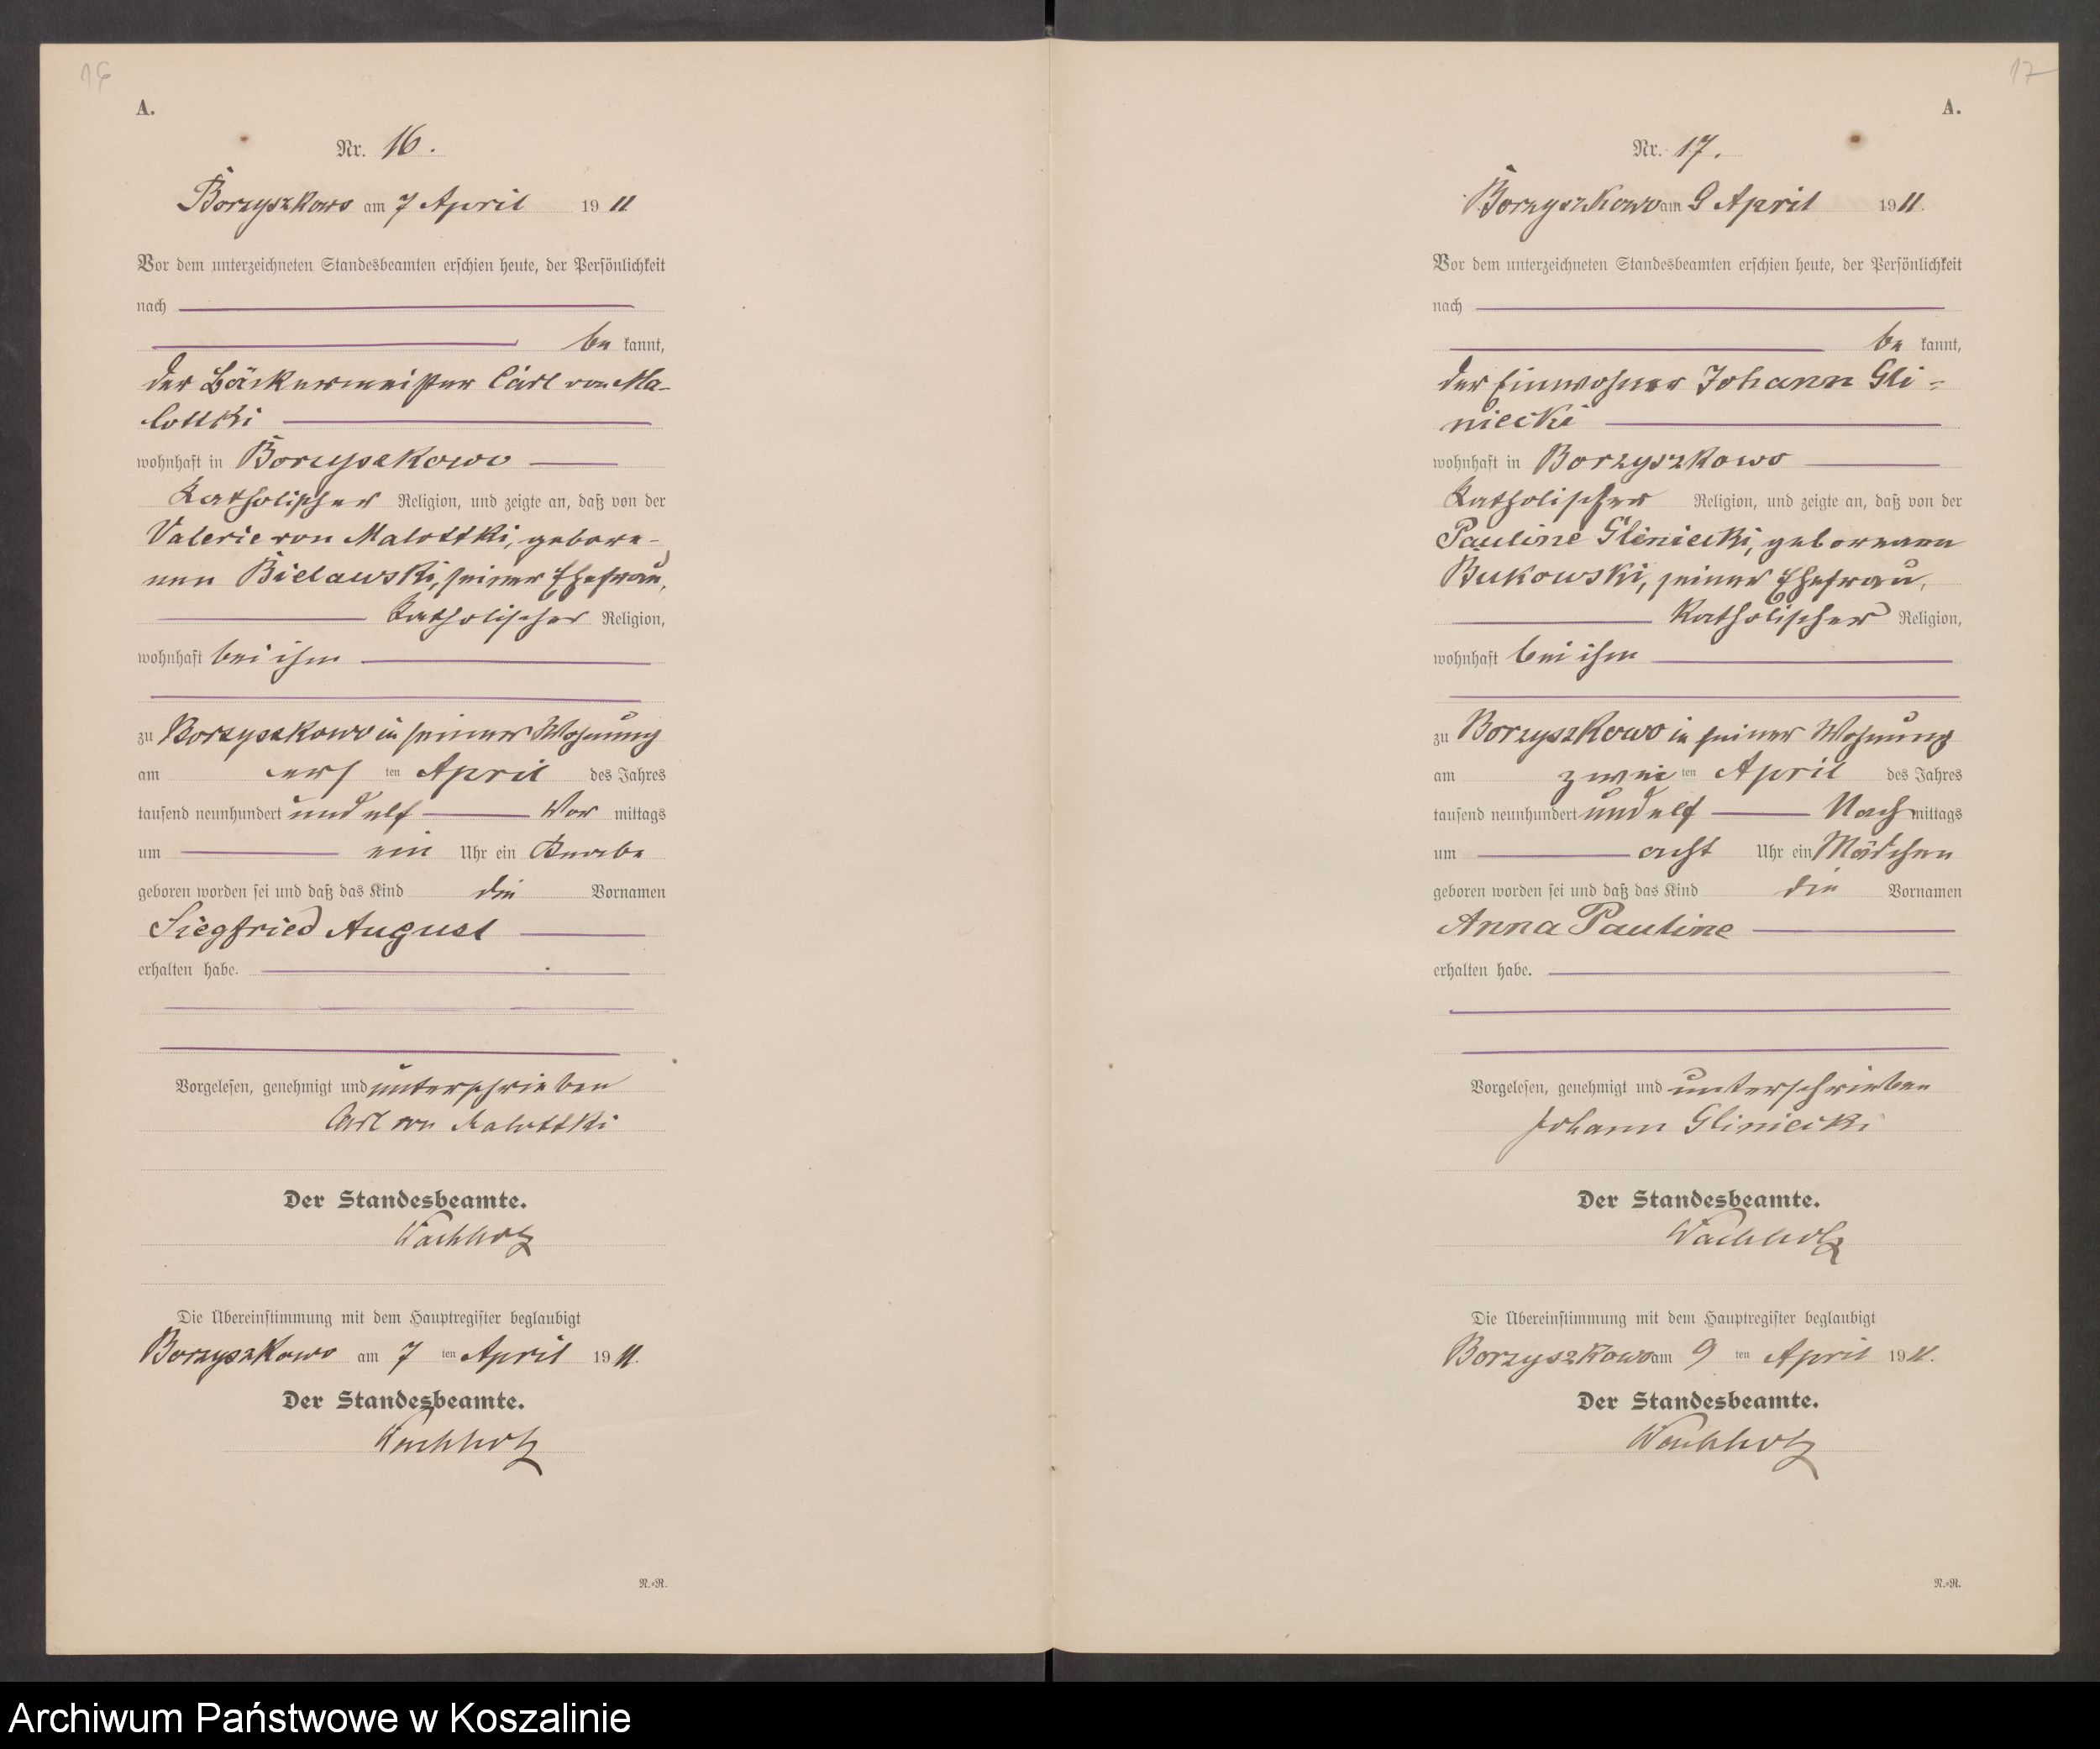 16
A.
Nr. 16.
Borzyszkowo am 7 April 1911
Vor dem unterzeichneten Standesbeamten erschien heute, der Persönlichkeit
nach
be kannt,
der Bäckermeister Carl von Ma-
lottki
wohnhaft in Borzyszkowo
katholischer Religion, und zeigte an, daß von der
Valerie von Malottki, gebore-
nen Bielawski, seiner Ehefrau,
katholischer Religion,
wohnhaft bei ihm
zu Borzyszkowo in seiner Wohnung
am ersten April des Jahres
tausend neunhundert und elf Vor mittags
um ein Uhr ein Knabe
geboren worden sei und daß das Kind die Vornamen
Siegfried August
erhalten habe.
Vorgelesen, genehmigt und unterschrieben
Carl von Malottki
Der Standesbeamte.
Wachholz
Die Übereinstimmung mit dem Hauptregister beglaubigt
Borzyszkowo am 7 ten April 1911.
Der Standesbeamte.
Wachholz
N.-R.
17
A.
Nr. 17.
Borzyszkowo am 9 April 1911.
Vor dem unterzeichneten Standesbeamten erschien heute, der Persönlichkeit
nach
be kannt,
der Einwohner Johann Gli-
niecki
wohnhaft in Borzyszkowo
katholischer Religion, und zeigte an, daß von der
Pauline Gliniecki, geborenen
Bukowski, seiner Ehefrau,
katholischer Religion,
wohnhaft bei ihm
zu Borzyszkowo in seiner Wohnung
am zwei ten April des Jahres
tausend neunhundert und elf Nach mittags
um acht Uhr ein Mädchen
geboren worden sei und daß das Kind die Vornamen
Anna Pauline
erhalten habe.
Vorgelesen, genehmigt und unterschrieben
Johann Gliniecki
Der Standesbeamte.
Wachholz
Die Übereinstimmung mit dem Hauptregister beglaubigt
Borzyszkowo am 9 ten April 1911.
Der Standesbeamte.
Wachholz
N.-R.
Archiwum Państwowe w Koszalinie